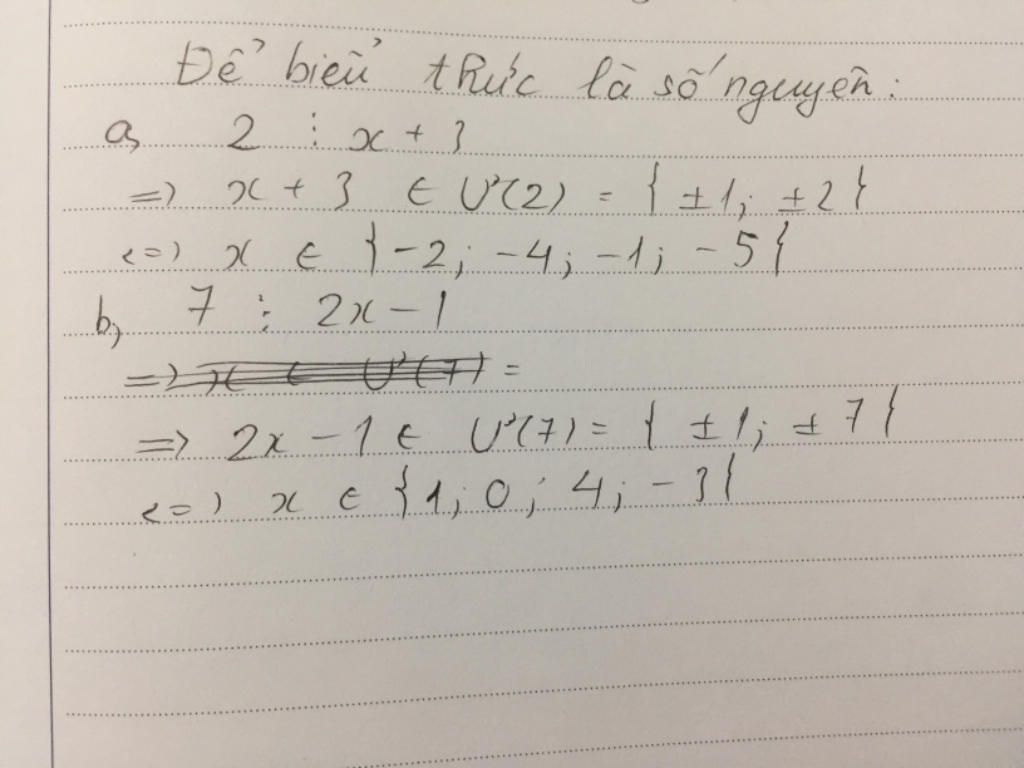 Để biểu thức là số nguyên:
a, 2 ⋮ x + 3
=> x + 3 ∈ Ư(2) = { ±1; ±2 }
<=> x ∈ { -2; -4; -1; -5 }
b, 7 ⋮ 2x - 1
=> x ∈ Ư(7) =
=> 2x - 1 ∈ Ư(7) = { ±1; ±7 }
<=> x ∈ { 1; 0; 4; -3 }